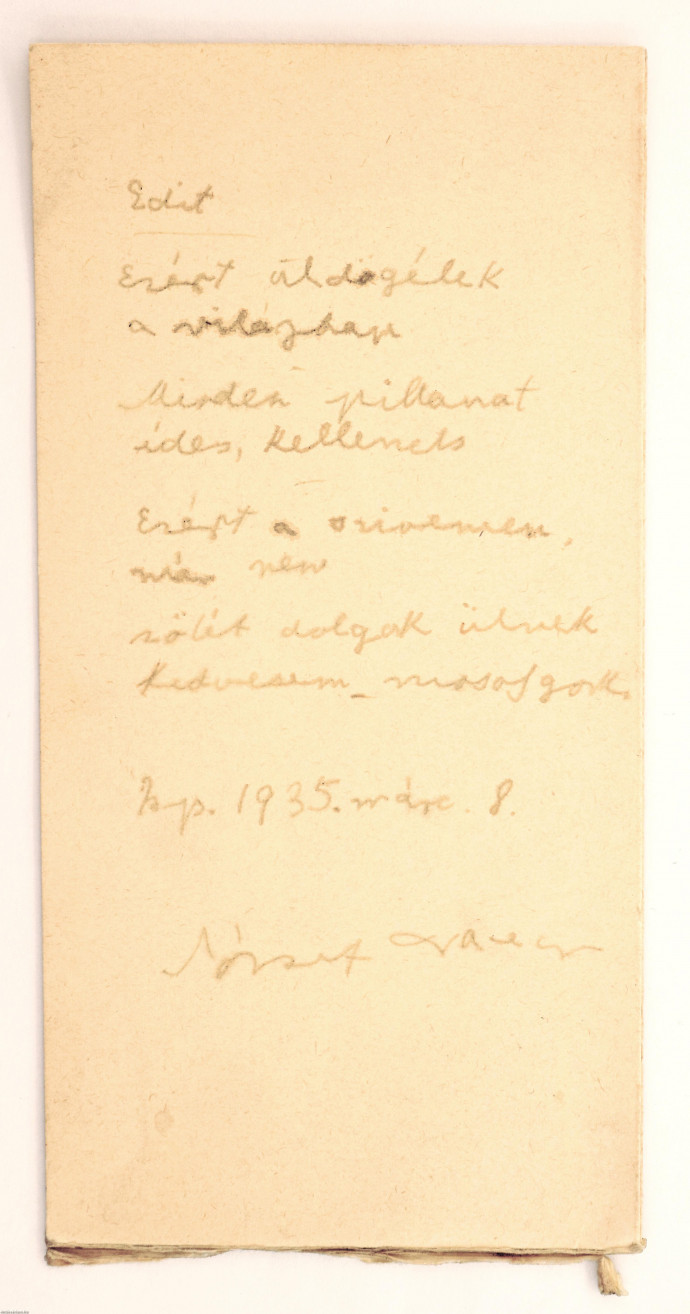 Edit
Ezért üldögélek
a világban
Minden pillanat
édes, kellemes
Ezért a szivemen,
már nem
sötét dolgok ülnek
Kedvesem
Bp. 1935. márc. 8.
József